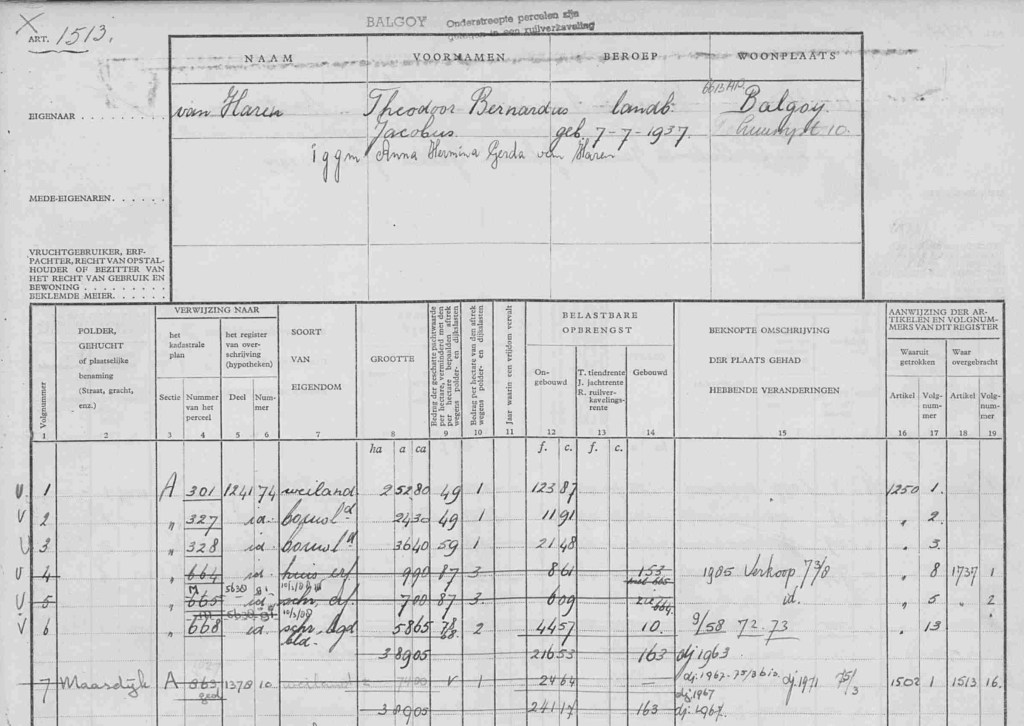 BALGOY Onderstreepte percelen zijn
in een ruilverkaveling
X
ART. 1513.
NAAM VOORNAMEN BEROEP WOONPLAATS
EIGENAAR van Haren Theodoor Bernardus landb. 6613AR Balgoy.
Jacobus. geb. 7-7-1937. 10.
iggm Anna Hermina Gerda van Haren
MEDE-EIGENAREN
VRUCHTGEBRUIKER, ERF-
PACHTER, RECHT VAN OPSTAL-
HOUDER OF BEZITTER VAN
HET RECHT VAN GEBRUIK EN
BEWONING
BEKLEMDE MEIER
Volgnummer
POLDER,
GEHUCHT
of plaatselijke
benaming
(Straat, gracht,
enz.)
VERWIJZING NAAR
het
kadastrale
plan
het register
van over-
schrijving
(hypotheken)
Sectie Nummer van het perceel Deel Num-mer
SOORT
VAN
EIGENDOM
GROOTTE
Bedrag der geschatte pachtwaarde
per hectare, verminderd met den
per hectare bepaalden aftrek
wegens polder- en dijkslasten
Bedrag per hectare van den aftrek
wegens polder- en dijkslasten
Jaar waarin een vrijdom vervalt
BELASTBARE
OPBRENGST
On-
gebouwd
T. tiendrente
J. jachtrente
R. ruilver-
kavelings-
rente
Gebouwd
BEKNOPTE OMSCHRIJVING
DER PLAATS GEHAD
HEBBENDE VERANDERINGEN
AANWIJZING DER AR-
TIKELEN EN VOLGNUM-
MERS VAN DIT REGISTER
Waaruit
getrokken
Waar
overgebracht
Artikel Volg-num-mer Artikel Volg-num-mer
1 2 3 4 5 6 7 8 9 10 11 12 13 14 15 16 17 18 19
ha a ca f. c. f. c.
1 A 301 1241 74 weiland 2 52 80 49 1 123 87 1250 1.
2 " 327 id. bouwld 24 30 49 1 11 91 " 2.
3 " 328 id. bouwld 36 40 59 1 21 48 " 3.
4 " 664 id. huis, erf 9 90 87 3 8 61 153 1985 Verkoop 73/8 " 8 1737 1
5 " 665 5630 id. schr, erf. 7 00 87 3. 6 09 id. " 5 " 2
6 " 668 id. schr, bgd 58 65 78 2 44 57 10. 9/58 72.73 " 13
bld.
3 89 05 216 53 163 dj 1963
7 Maasdijk A 863 1378 10. weiland 74 00 v 1 24 64 — dj. 1971 75/3 1502 1 1513 16.
ged dj 1967
3 89 05 241 17 163 dj. 1967.